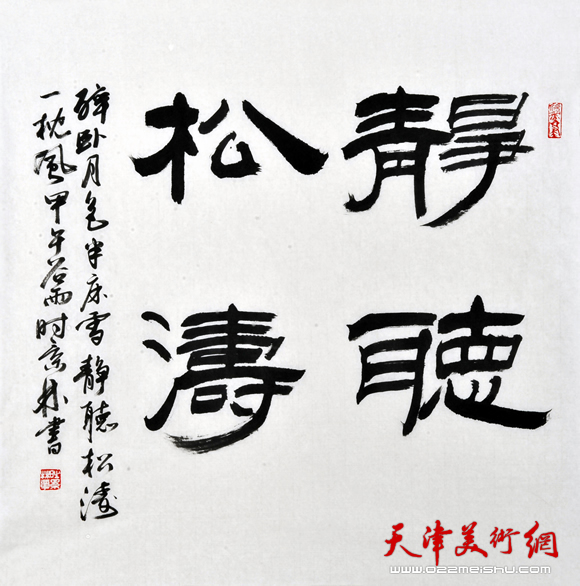 靜聽
松濤
醉卧月色半床雪靜聽松濤
一枕風甲午谷雨时景林書
天津美術網
www.022meishu.com